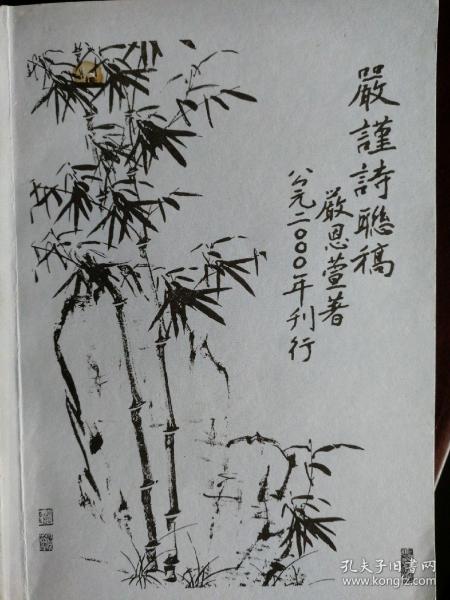 嚴謹詩聯稿
嚴恩萱著
公元二〇〇〇年刊行
孔夫子旧书网
www.kongfz.com